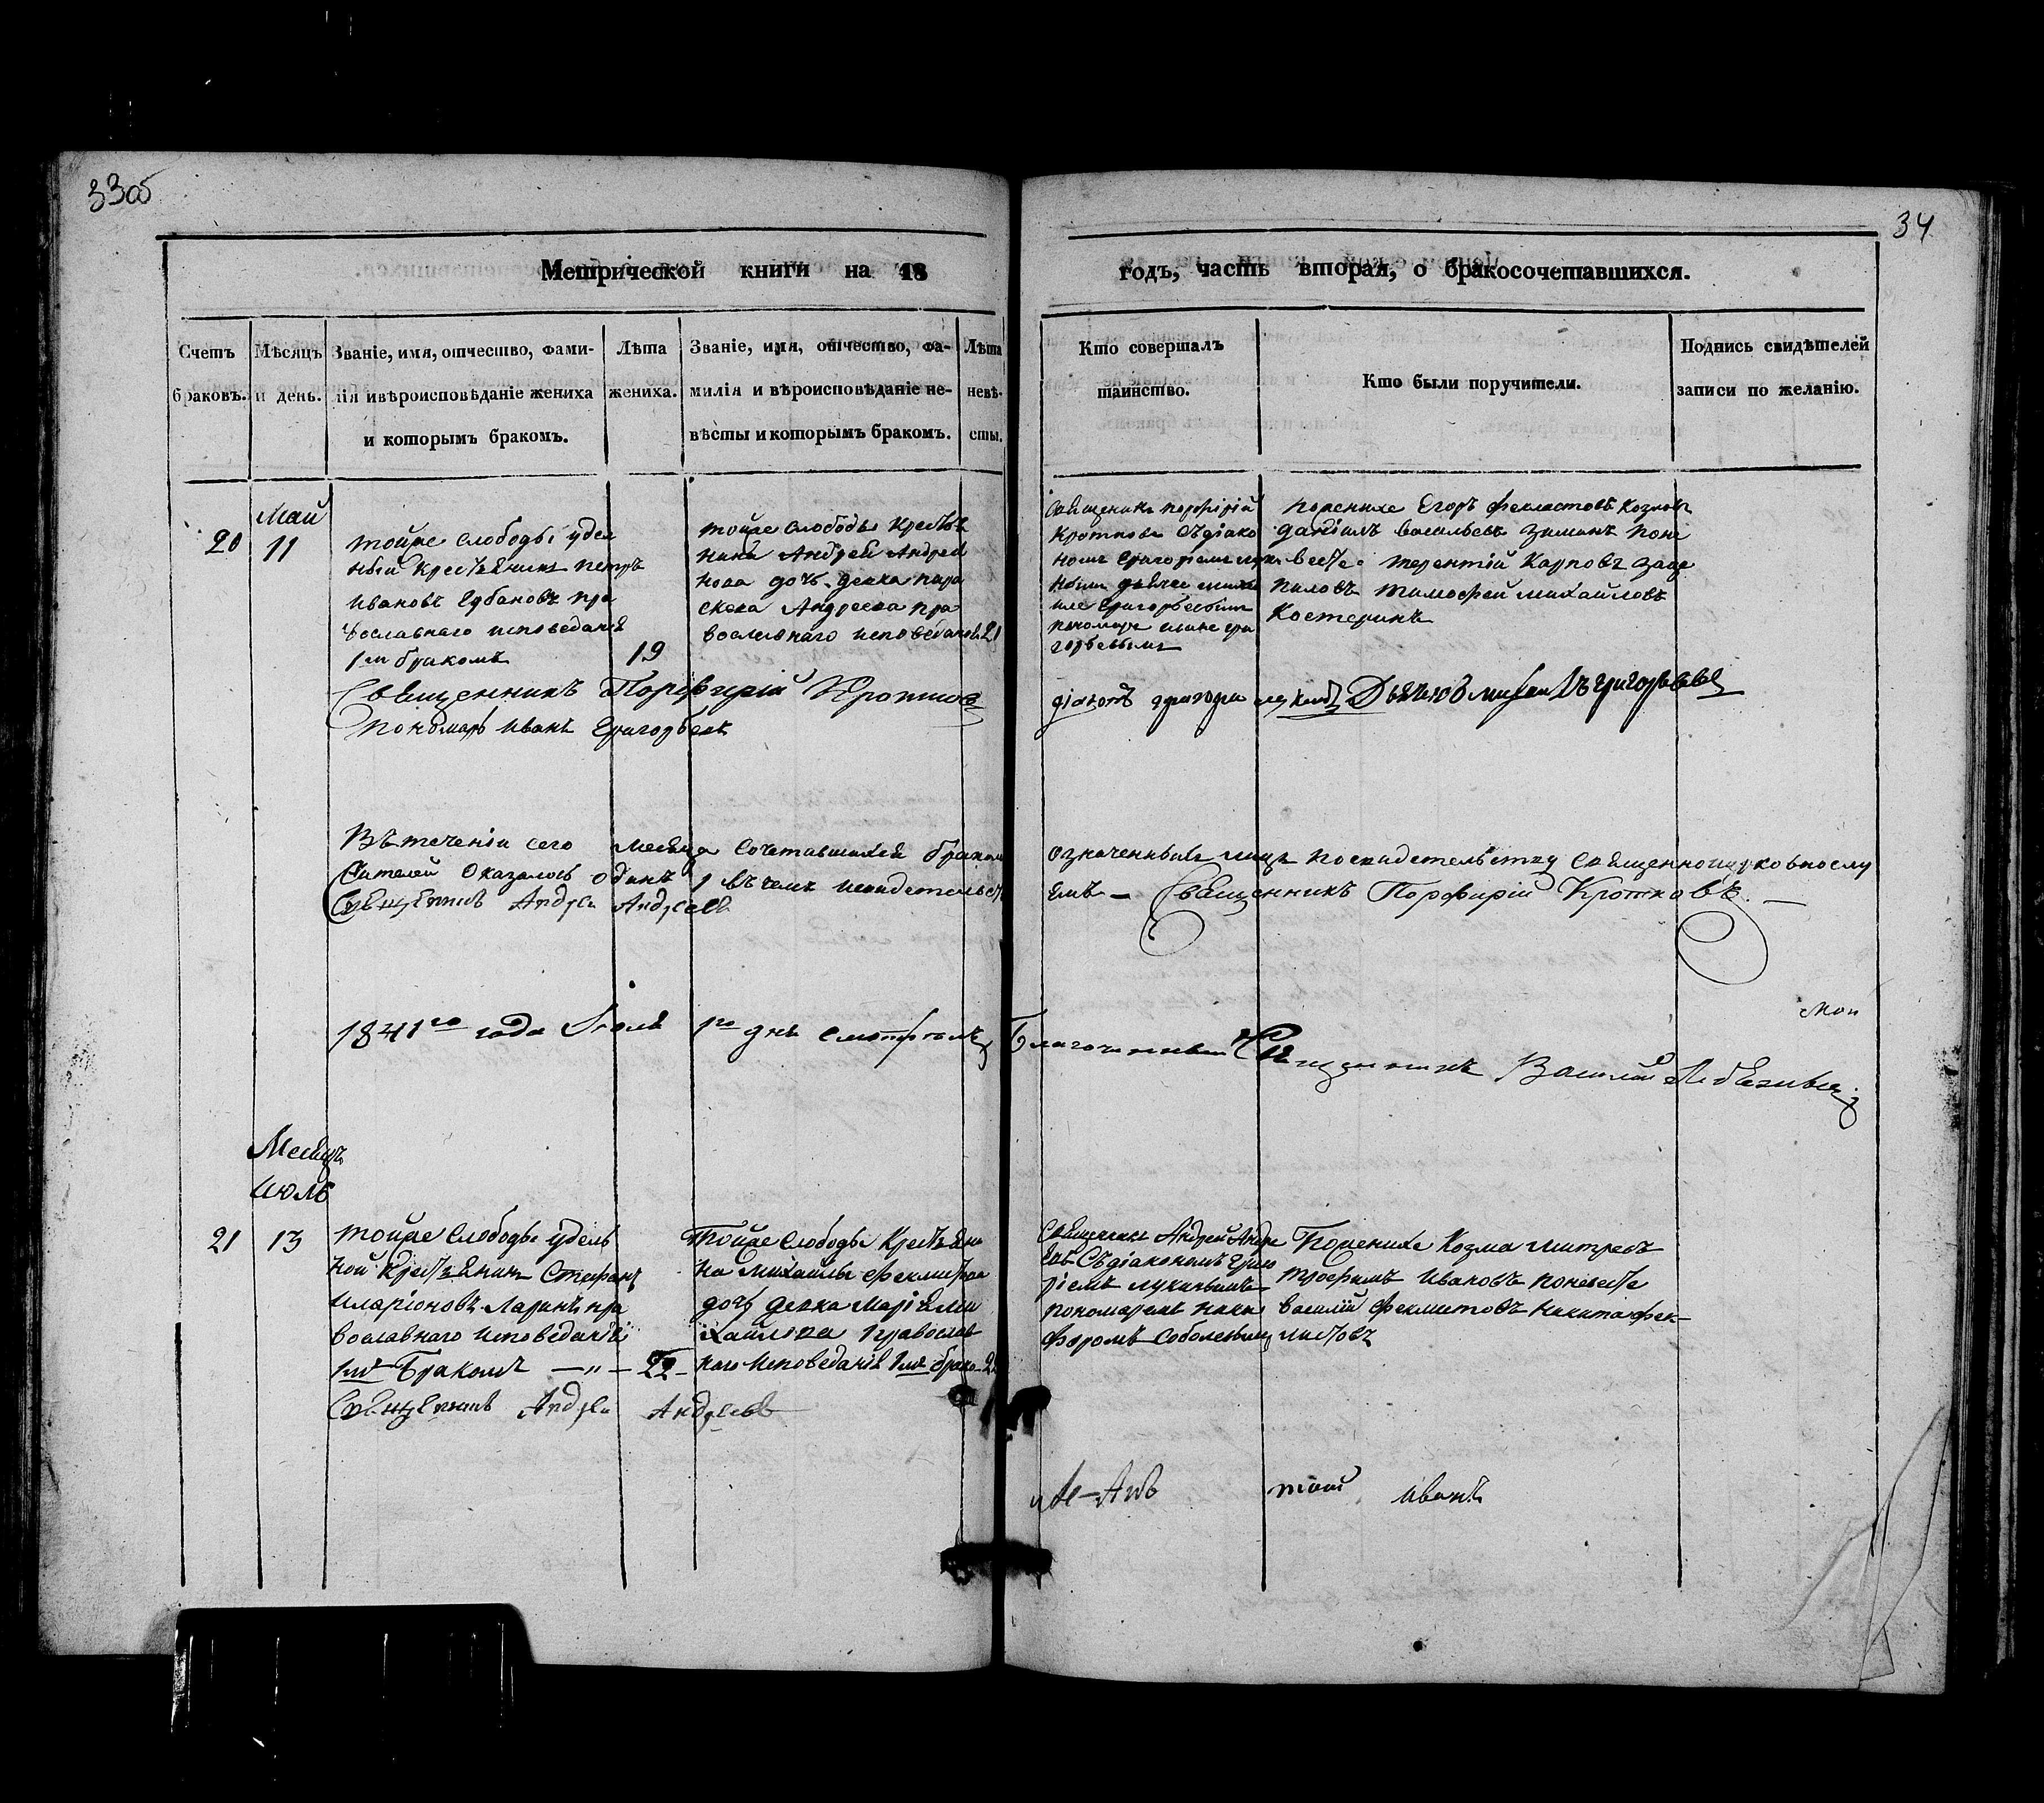 33об
34
Метрической книги на 18
годъ, часть вторая, о бракосочетавшихся.
Счетъ браковъ.
Мѣсяцъ и день.
Званіе, имя, отчество, фами-
лія ивѣроисповѣданіе жениха
и которымъ бракомъ.
Лѣта
жениха.
Званіе, имя, отчество, фа-
милія и вѣроисповѣданіе не-
вѣсты и которымъ бракомъ.
Лѣта
невѣ-
сты.
Кто совершалъ
таинство.
Кто были поручители.
Подпись свидѣтелей
записи по желанію.
Май
20
11
тойже слободы удел
ный крестьянинъ петръ
Ивановъ пра
вославнаго исповеданія
1м бракомъ
19
тойже слободы крестья
нина Андрей Андрея
нова дочь девка пара
скева Андреева пра
вославнаго исповеданія 21
священникъ порфирій
Кротковъ съ діако
номъ Григоріемъ
Григорьевымъ
пономаръ
горьевымъ
поженихе Егоръ феклистовъ Козловъ
даніилъ васильевъ Зиминъ поне
весте терентій Карповъ
пиловъ тимофей михайловъ
Костеринъ
Священникъ Порфирій Кротковъ
пономарь иванъ Григорьевъ
діаконъ григори Дьячекъ михаилъ григорьевъ
Въ теченіи сего месяца сочетавшихся бракомъ
означенныхъ лицъ посвидетельству священноцерковнослу
жителей оказалось одинъ 1 въ чемъ исвидетельст
емъ — Священникъ Порфирій Кротковъ. —
Священникъ Андрей Андреевъ
1841го года Іюля 1го дня смотрелъ Благочинный Священникъ Василій
Месяцъ
июль
21
13
тойже слободы удель
ной крестьянинъ Стефанъ
иларіоновъ Ларинъ пра
вославнаго исповеданія
1мъ Бракомъ — „ — 22 —
Тойже слободы крестьяни
на михайлы феклистова
дочь девка марія ми
хайлова православ
наго исповеданія 1мъ брако
Священникъ Андрей Андре
евъ Съ діакономъ Григо
ріемъ лукинымъ
пономаремъ ники
форомъ соболевымъ
Поженихе Козма митревъ
трофимъ ивановъ поневесте
василій феклистовъ никита фек-
листовъ
Священникъ Андрей Андреевъ
иванъ